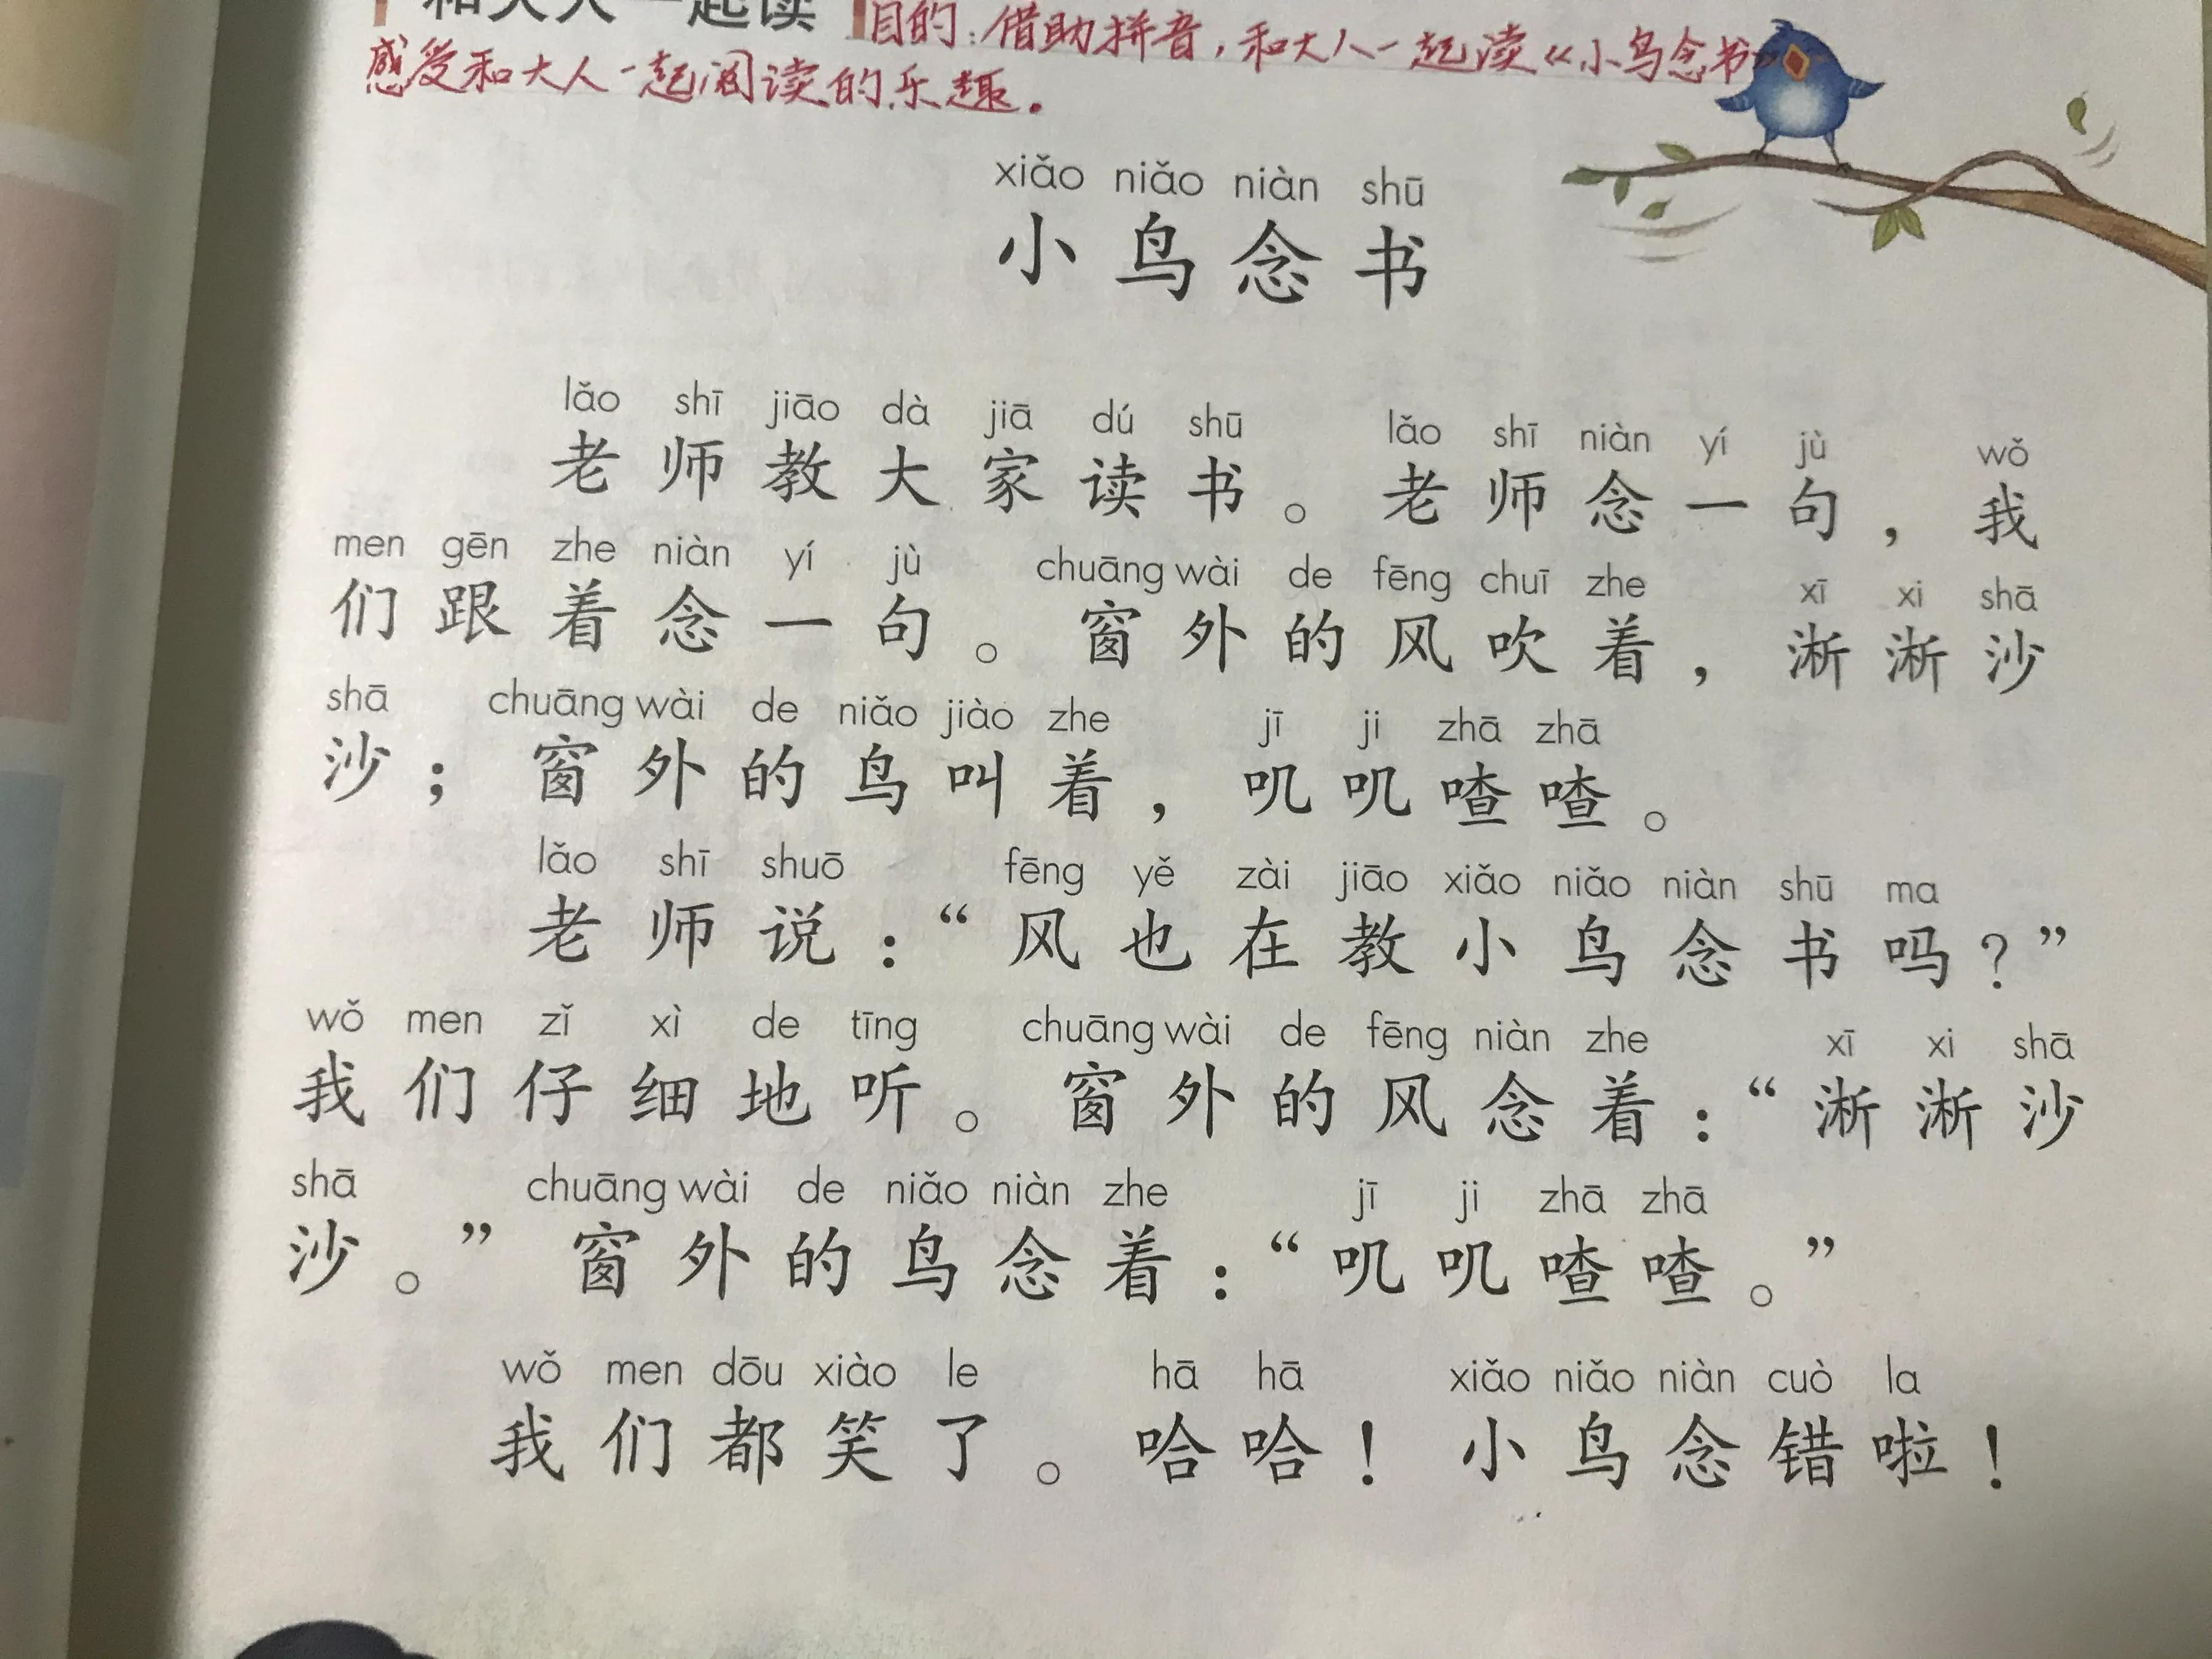 和大人一起读 目的：借助拼音，和大人一起读《小鸟念书》
感受和大人一起阅读的乐趣。
xiǎo niǎo niàn shū
小鸟念书
lǎo shī jiāo dà jiā dú shū lǎo shī niàn yí jù wǒ
老师教大家读书。老师念一句，我
men gēn zhe niàn yí jù chuāng wài de fēng chuī zhe xī xi shā
们跟着念一句。窗外的风吹着，淅淅沙
shā chuāng wài de niǎo jiào zhe jī ji zhā zhā
沙；窗外的鸟叫着，叽叽喳喳。
lǎo shī shuō fēng yě zài jiāo xiǎo niǎo niàn shū ma
老师说：“风也在教小鸟念书吗？”
wǒ men zǐ xì de tīng chuāng wài de fēng niàn zhe xī xi shā
我们仔细地听。窗外的风念着：“淅淅沙
shā chuāng wài de niǎo niàn zhe jī ji zhā zhā
沙。”窗外的鸟念着：“叽叽喳喳。”
wǒ men dōu xiào le hā hā xiǎo niǎo niàn cuò la
我们都笑了。哈哈！小鸟念错啦！